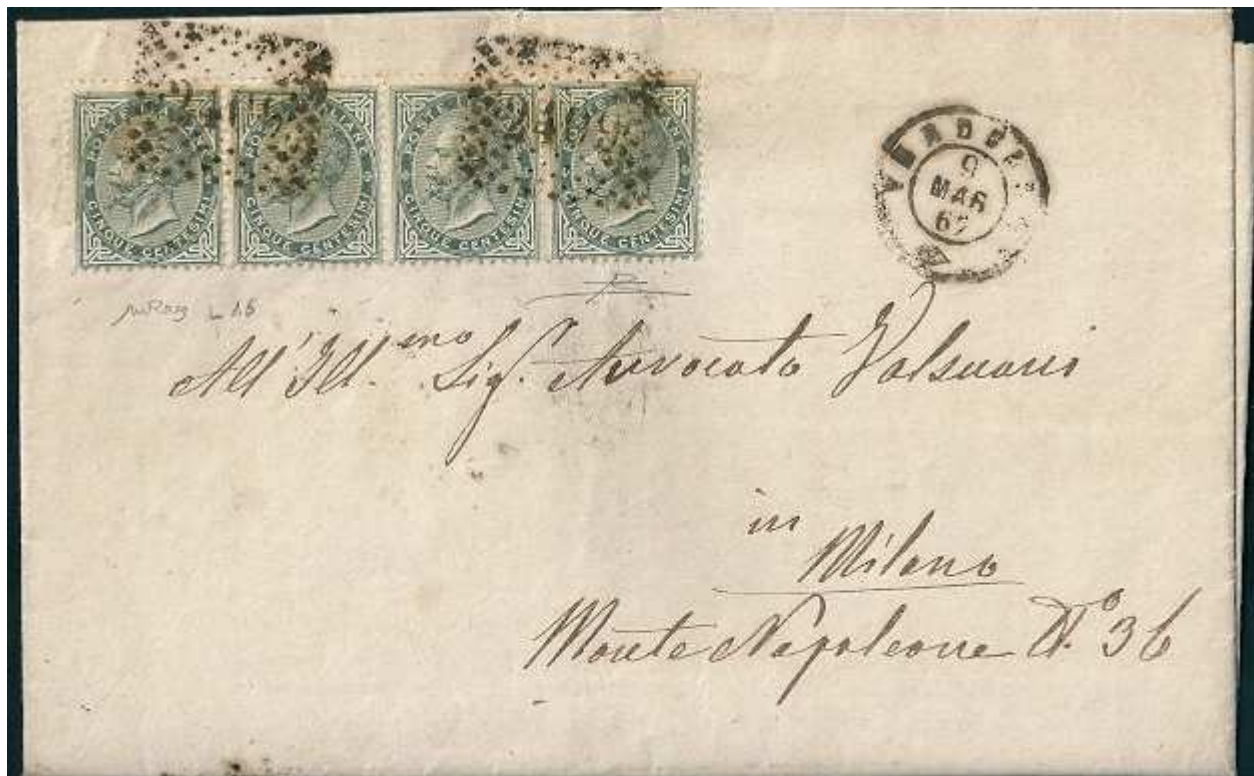 POSTE ITALIANE
CINQUE CENTESIMI
POSTE ITALIANE
CINQUE CENTESIMI
POSTE ITALIANE
CINQUE CENTESIMI
POSTE ITALIANE
CINQUE CENTESIMI
9
MAR
All' Ill.mo Sig. Avvocato Valsuani
in
Milano
Monte Napoleone N.o 36